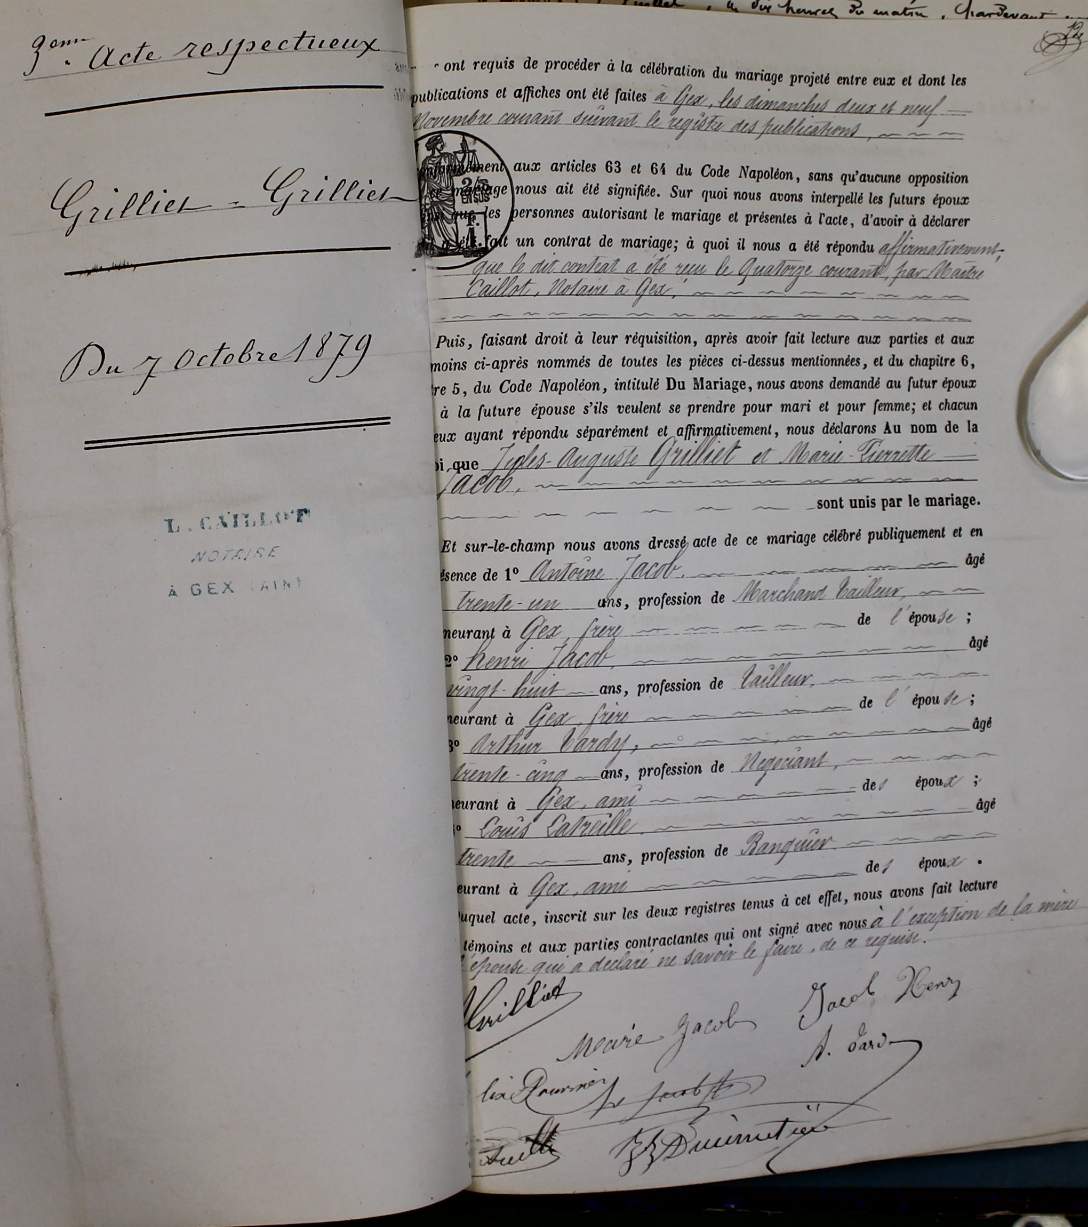 3eme Acte respectueux
Grilliet - Grilliet
Du 7 Octobre 1879
L. CAILLOT
NOTAIRE
À GEX (AIN)
dix heures du matin, Pardevant
ont requis de procéder à la célébration du mariage projeté entre eux et dont les
publications et affiches ont été faites à Gex, les dimanches deux et neuf
Novembre courant suivant le registre des publications,
2/10
EN SUS
aux articles 63 et 64 du Code Napoléon, sans qu'aucune opposition
mariage nous ait été signifiée. Sur quoi nous avons interpellé les futurs époux
que les personnes autorisant le mariage et présentes à l'acte, d'avoir à déclarer
fait un contrat de mariage; à quoi il nous a été répondu affirmativement,
que le dit contrat a été reçu le Quatorze courant, par Maître
Caillot, Notaire à Gex,
Puis, faisant droit à leur réquisition, après avoir fait lecture aux parties et aux
moins ci-après nommés de toutes les pièces ci-dessus mentionnées, et du chapitre 6,
re 5, du Code Napoléon, intitulé Du Mariage, nous avons demandé au futur époux
à la future épouse s'ils veulent se prendre pour mari et pour femme; et chacun
eux ayant répondu séparément et affirmativement, nous déclarons Au nom de la
oi, que Jules-Auguste Grilliet et Marie-Pierrette
Jacob,
sont unis par le mariage.
Et sur-le-champ nous avons dressé acte de ce mariage célébré publiquement et en
ésence de 1° Antoine Jacob, âgé
trente-un ans, profession de Marchand tailleur,
meurant à Gex, frère de l'épouse;
2° henri Jacob, âgé
vingt-huit ans, profession de tailleur,
meurant à Gex, frère de l'épouse;
3° Arthur Tardy, âgé
trente-cinq ans, profession de Négociant,
meurant à Gex, ami des époux;
° Louis Latreille âgé
trente ans, profession de Banquier
eurant à Gex, ami des époux.
uquel acte, inscrit sur les deux registres tenus à cet effet, nous avons fait lecture
témoins et aux parties contractantes qui ont signé avec nous à l'exception de la mère
épouse qui a déclaré ne savoir le faire, de ce requise.
Grilliet
Marie Jacob
Jacob Henry
A. Tardy